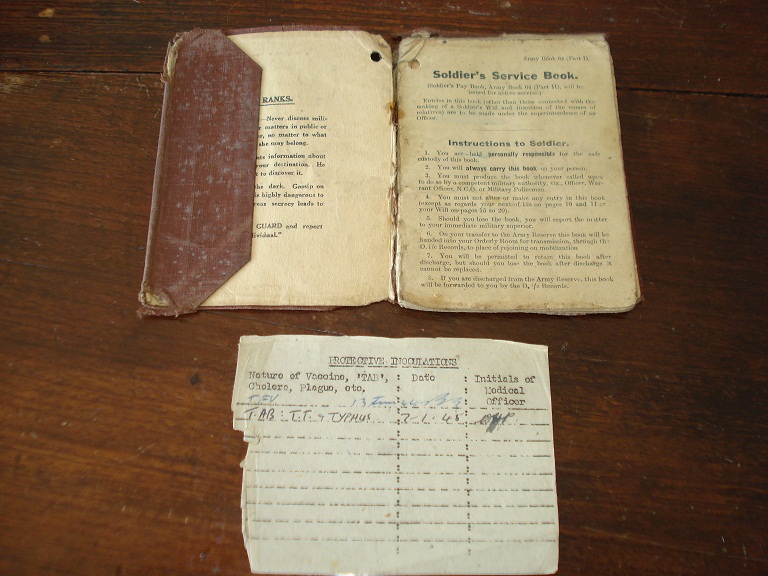 RANKS.
—Never discuss mili-
r matters in public or
er, no matter to what
she may belong.
ts information about
your destination. He
t to discover it.
the dark. Gossip on
is highly dangerous to
secrecy leads to
GUARD and report
dividual."
Army Book 64 (Part I).
Soldier's Service Book.
(Soldier's Pay Book, Army Book 64 (Part II), will be
issued for active service.)
Entries in this book (other than those connected with the
making of a Soldier's Will and insertion of the names of
relatives) are to be made under the superintendence of an
Officer.
Instructions to Soldier.
1. You are held personally responsible for the safe
custody of this book.
2. You will always carry this book on your person.
3. You must produce the book whenever called upon
to do so by a competent military authority, viz., Officer, War-
rant Officer, N.C.O. or Military Policeman.
4. You must not alter or make any entry in this book
(except as regards your next-of-kin on pages 10 and 11 or
your Will on pages 15 to 20).
5. Should you lose the book, you will report the matter
to your immediate military superior.
6. On your transfer to the Army Reserve this book will be
handed into your Orderly Room for transmission, through the
O. i/c Records, to place of rejoining on mobilization.
7. You will be permitted to retain this book after
discharge, but should you lose the book after discharge it
cannot be replaced.
8. If you are discharged from the Army Reserve, this book
will be forwarded to you by the O. i/c Records.
PROTECTIVE INOCULATIONS
Nature of Vaccine, 'TAB', : Date : Initials of
Cholera, Plague, etc. : : Medical
Officer
13 44
T.AB: T.T. & TYPHUS 2.1.45